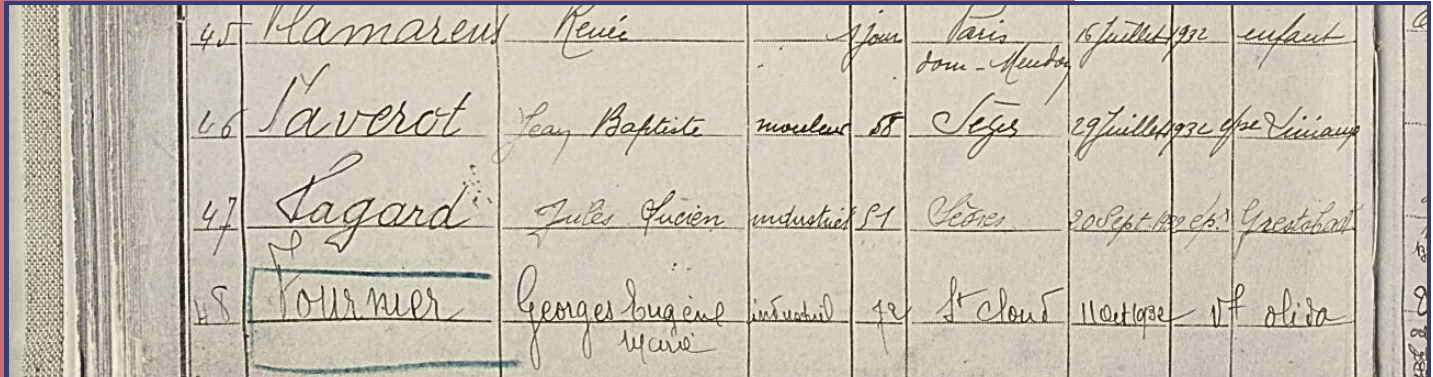 45 Flamareus Renée 1 jour Paris 16 Juillet 1932 enfant
dom - Meudon
46 Faverot Jean Baptiste mouleur 58 Sèvres 29 Juillet 1932 épse
47 Fagard Jules Lucien industriel 51 Sèvres 20 Sept. 1932 ép.
48 Fournier Georges Eugène industriel 72 St Cloud 11 Oct 1932 Vf olida
Marie